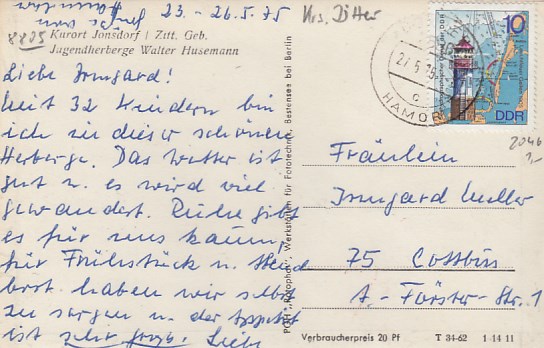 23. - 26.5.75
8805 Kurort Jonsdorf / Zitt. Geb.
Jugendherberge Walter Husemann
Liebe Irmgard!
Mit 32 Kindern bin
ich in dieser schönen
Herberge. Das Wetter ist
gut u. es wird viel
gewandert. Ruhe gibt
es für uns kaum,
für Frühstück u. Abend
brot haben wir selbst
zu sorgen u. der Appetit
ist sehr groß. Liebe
Krs. Zittau
10
DDR
27.5.75
HAMOR
2046
1,-
Fräulein
Irmgard Müller
75 Cottbus
A.-Förster-Str. 1
Werkstätten für Fototechnik, Bestensee bei Berlin
Verbraucherpreis 20 Pf T 34-62 1 14 11